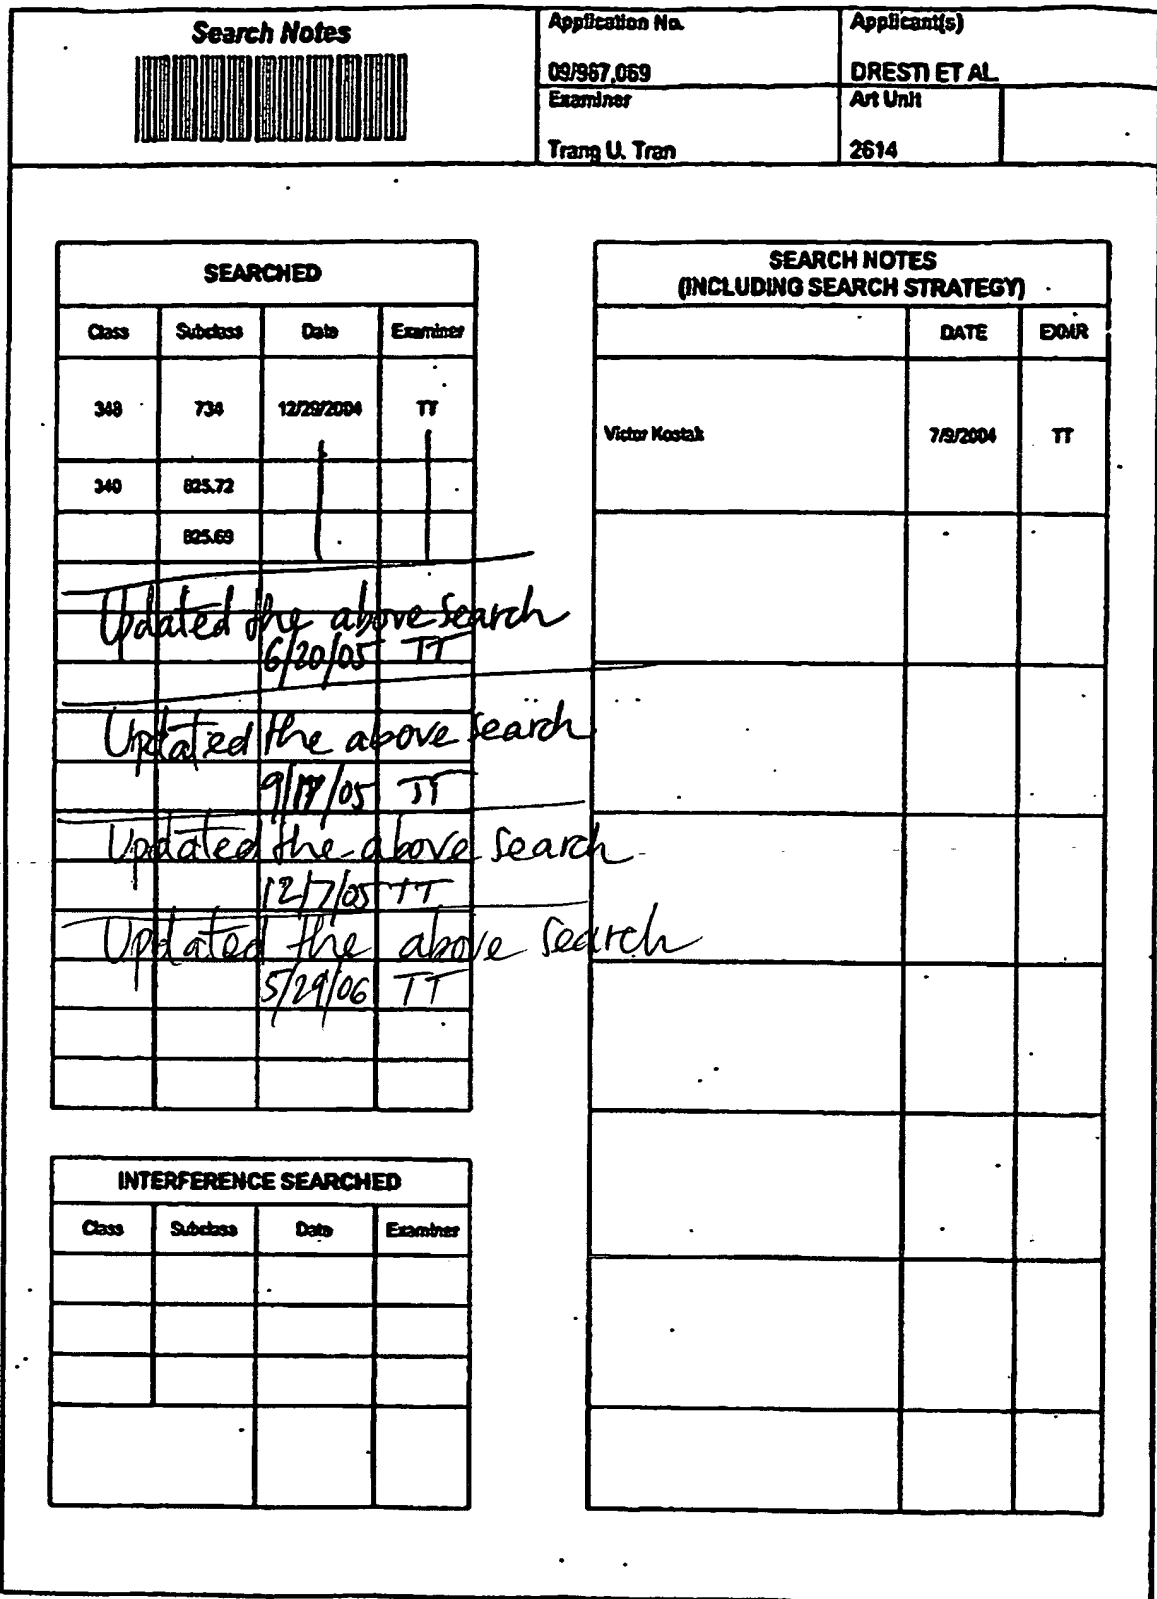 Search Notes
Application No.
Applicant(s)
09/967,069
DRESTI ET AL.
Examiner
Art Unit
Trang U. Tran
2614
SEARCHED
Class Subclass Date Examiner
348 734 12/29/2004 TT
340 825.72
825.69
Updated the above search
6/20/05 TT
Updated the above search
TT
Updated the above search
12/7/05 TT
Updated the above search
5/29/06 TT
INTERFERENCE SEARCHED
Class Subclass Date Examiner
SEARCH NOTES
(INCLUDING SEARCH STRATEGY)
DATE EXMR
Victor Kostak 7/9/2004 TT